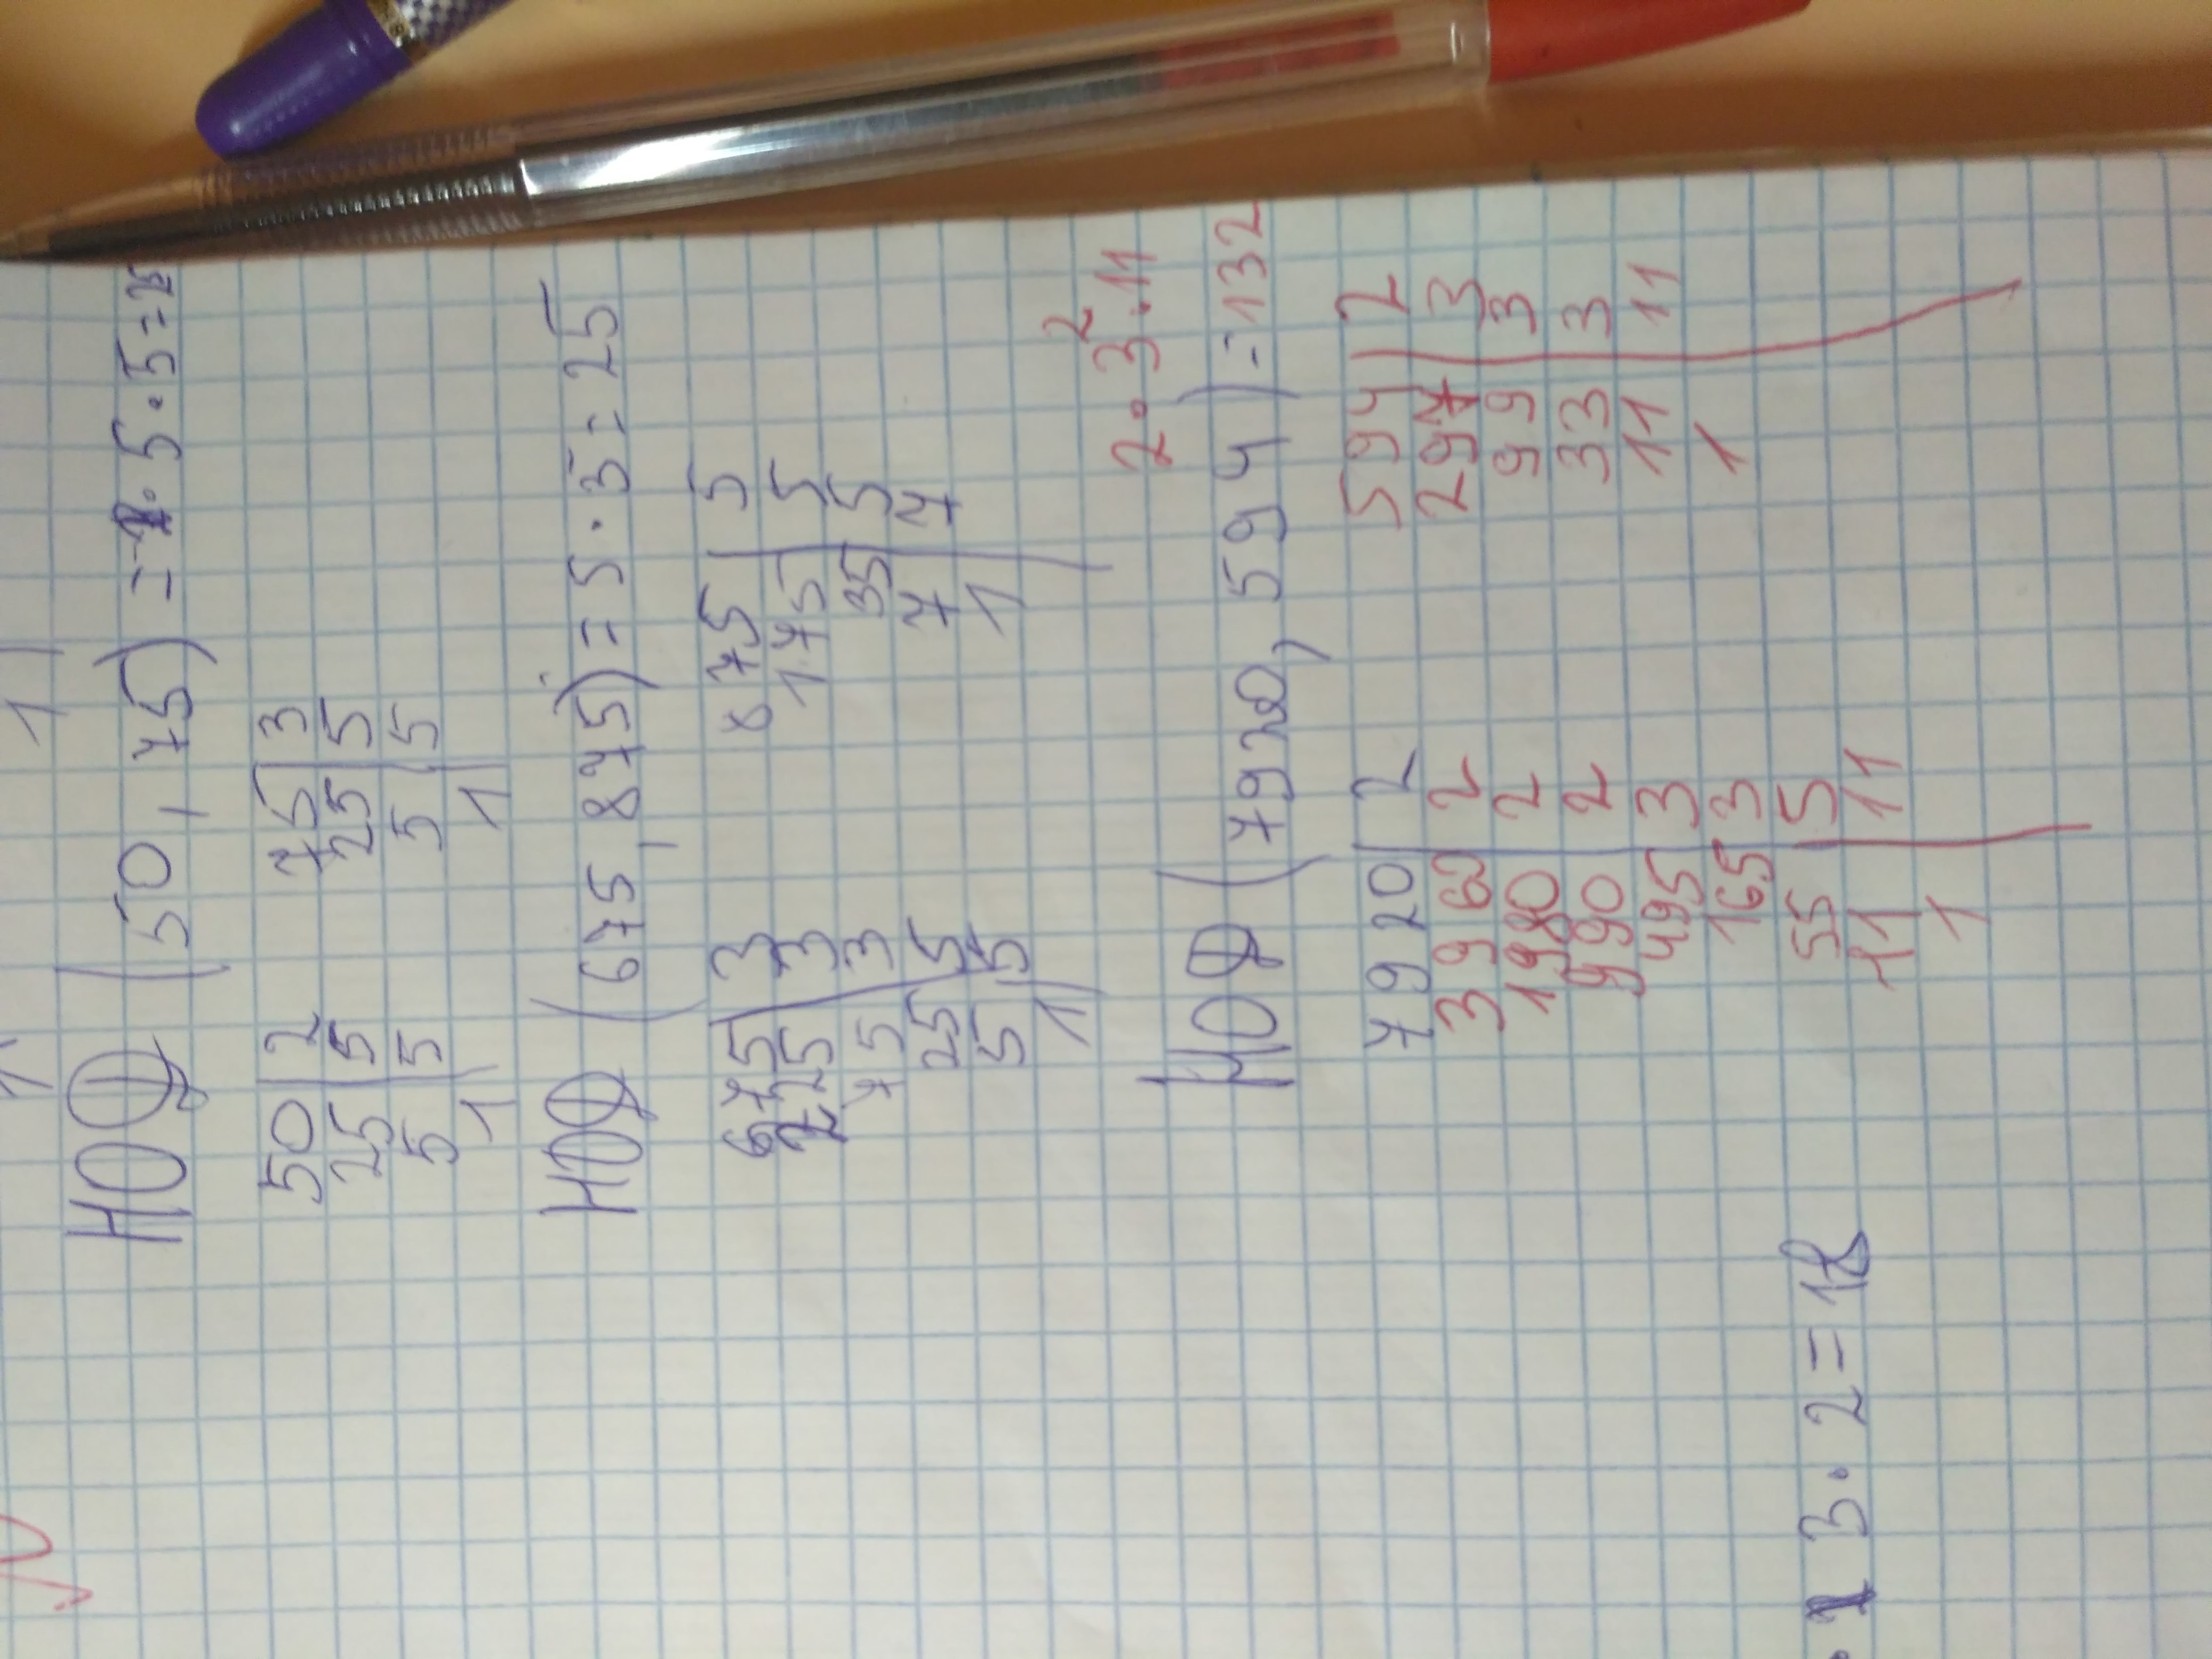 НОД (50, 75) = 1 · 5 · 5 = 25
50 | 2 75 | 3
25 | 5 25 | 5
5 | 5 5 | 5
1 1
НОД (675, 875) = 5 · 5 = 25
675 | 3 875 | 5
225 | 3 175 | 5
75 | 3 35 | 5
25 | 5 7 | 7
5 | 5 1
1
2 · 3² · 11
НОД (7920, 594) = 132
7920 | 2 594 | 2
3960 | 2 297 | 3
1980 | 2 99 | 3
990 | 2 33 | 3
495 | 3 11 | 11
165 | 3 1
55 | 5
11 | 11
1
3 · 2 = 18